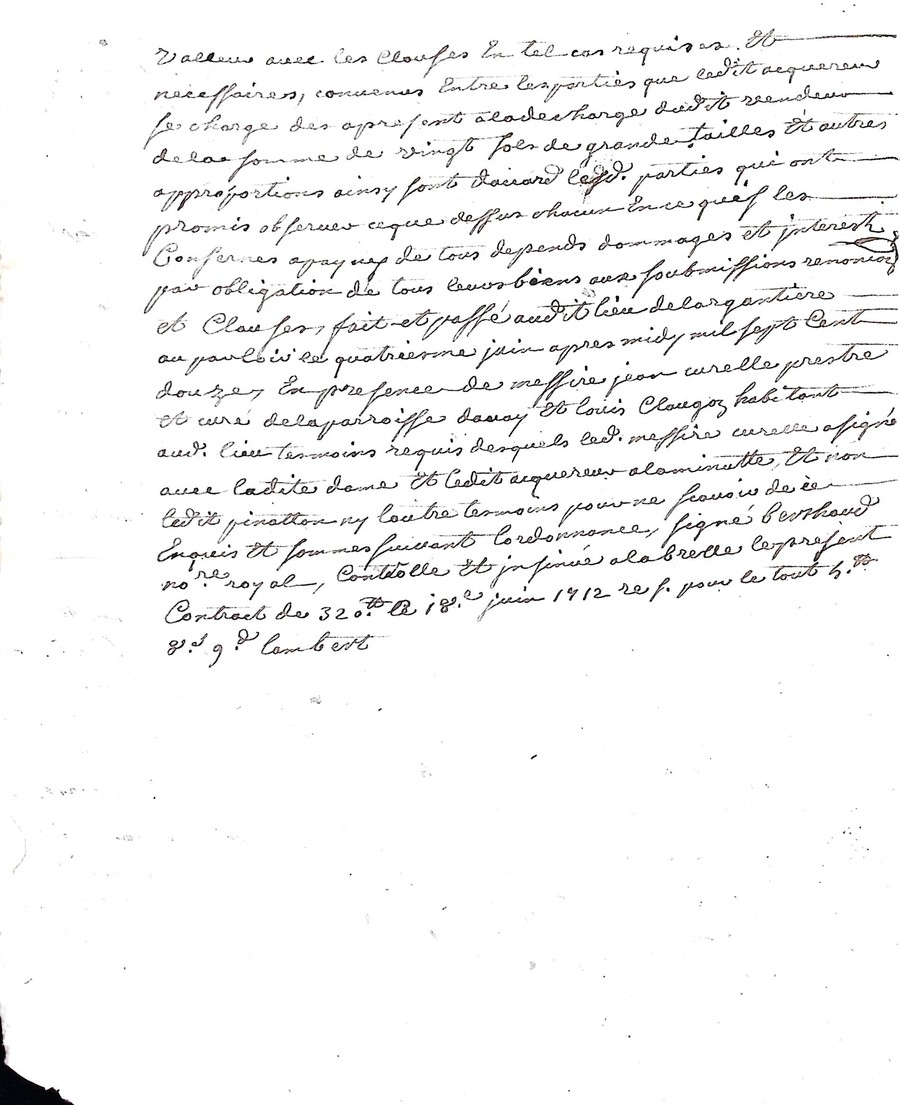 Valleur avec les Clauses En tel cas requises Et
necessaires, convenus Entre les parties que ledit acquereur
se charge des apresent aladecharge dudit vendeur
dela somme de vingt sols de grande tailles Et autres
approportions ainsy sont daccord lesd. parties qui ont
promis observer ceque dessus chacun En ce quil les
Consernes apayne de tous depends dommages et interests
par obligation de tous leurs biens aux soubmissions renoncions
et Clauses, fait et passé audit lieu delargantière
au parloir le quatriesme juin apres midy mil sept Cent
douze, En presence de messire jean curelle prestre
et curé delaparroisse davay Et louis Claugoz habitant
aud. lieu tesmoins requis desquels led. messire curelle asigné
avec ladite dame Et ledit acquereur alaminutte, Et non
ledit pinatton ny lautre tesmoins pour ne scavoir de ce
Enquis Et sommes suivant lordonnance, signé berthaud
no.re royal, Controlle Et insinué alabrelle lepresent
Contract de 320.tt le 18.e juin 1712 re s. pour le tout 4.tt
8.s 9.d lambert